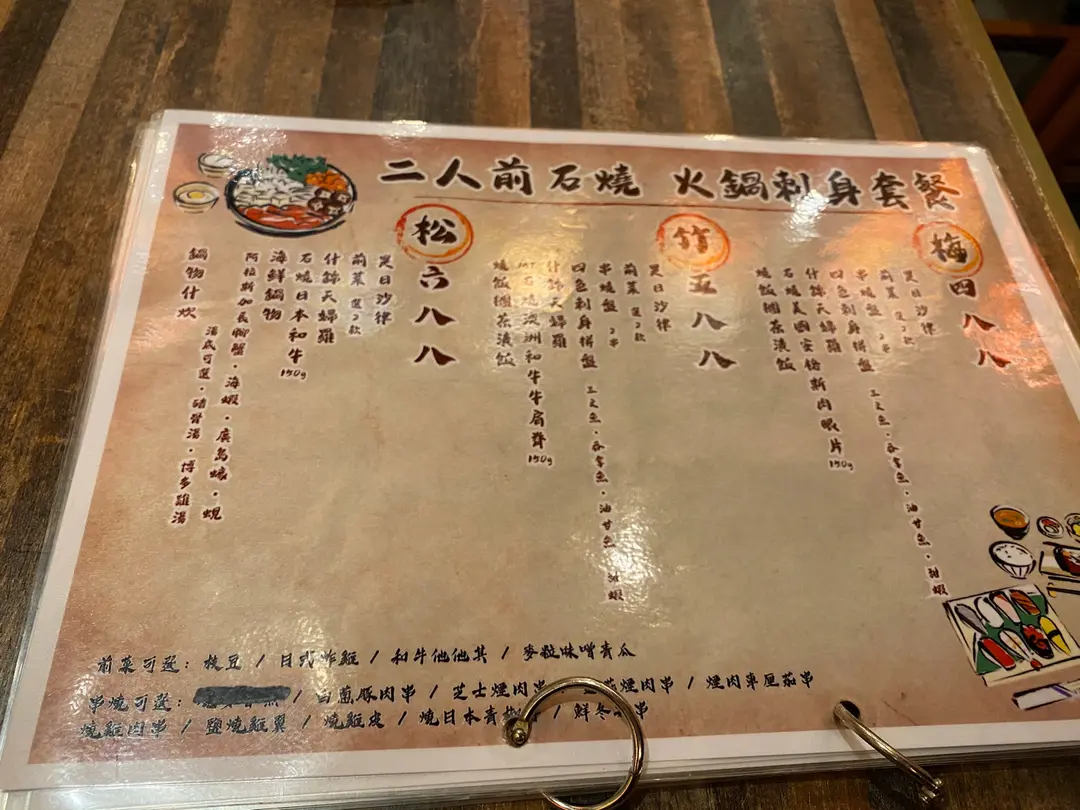 二人前石燒 火鍋刺身套餐
梅
四八八
是日沙律
前菜 選2款
串燒盤 2串
四色刺身拼盤 三文魚・吞拿魚・油甘魚・甜蝦
什錦天婦羅
石燒美國安格斯肉眼片 150g
燒飯團茶漬飯
竹
五八八
是日沙律
前菜 選2款
串燒盤 2串
四色刺身拼盤 三文魚・吞拿魚・油甘魚・甜蝦
什錦天婦羅
石燒澳洲和牛牛肩脊 150g
燒飯團茶漬飯
松
六八八
是日沙律
前菜 選2款
什錦天婦羅
石燒日本和牛 150g
海鮮鍋物
阿拉斯加長腳蟹・海蝦・廣島蠔・蜆
湯底可選・豬骨湯・博多雞湯
鍋物什炊
前菜可選：枝豆 / 日式炸雞 / 和牛他他其 / 麥粒味噌青瓜
串燒可選： / 白蔥豚肉串 / 芝士煙肉串 / 煙肉串 / 煙肉車厘茄串
燒雞肉串 / 鹽燒雞翼 / 燒雞皮 / 燒日本青椒 / 鮮冬 串